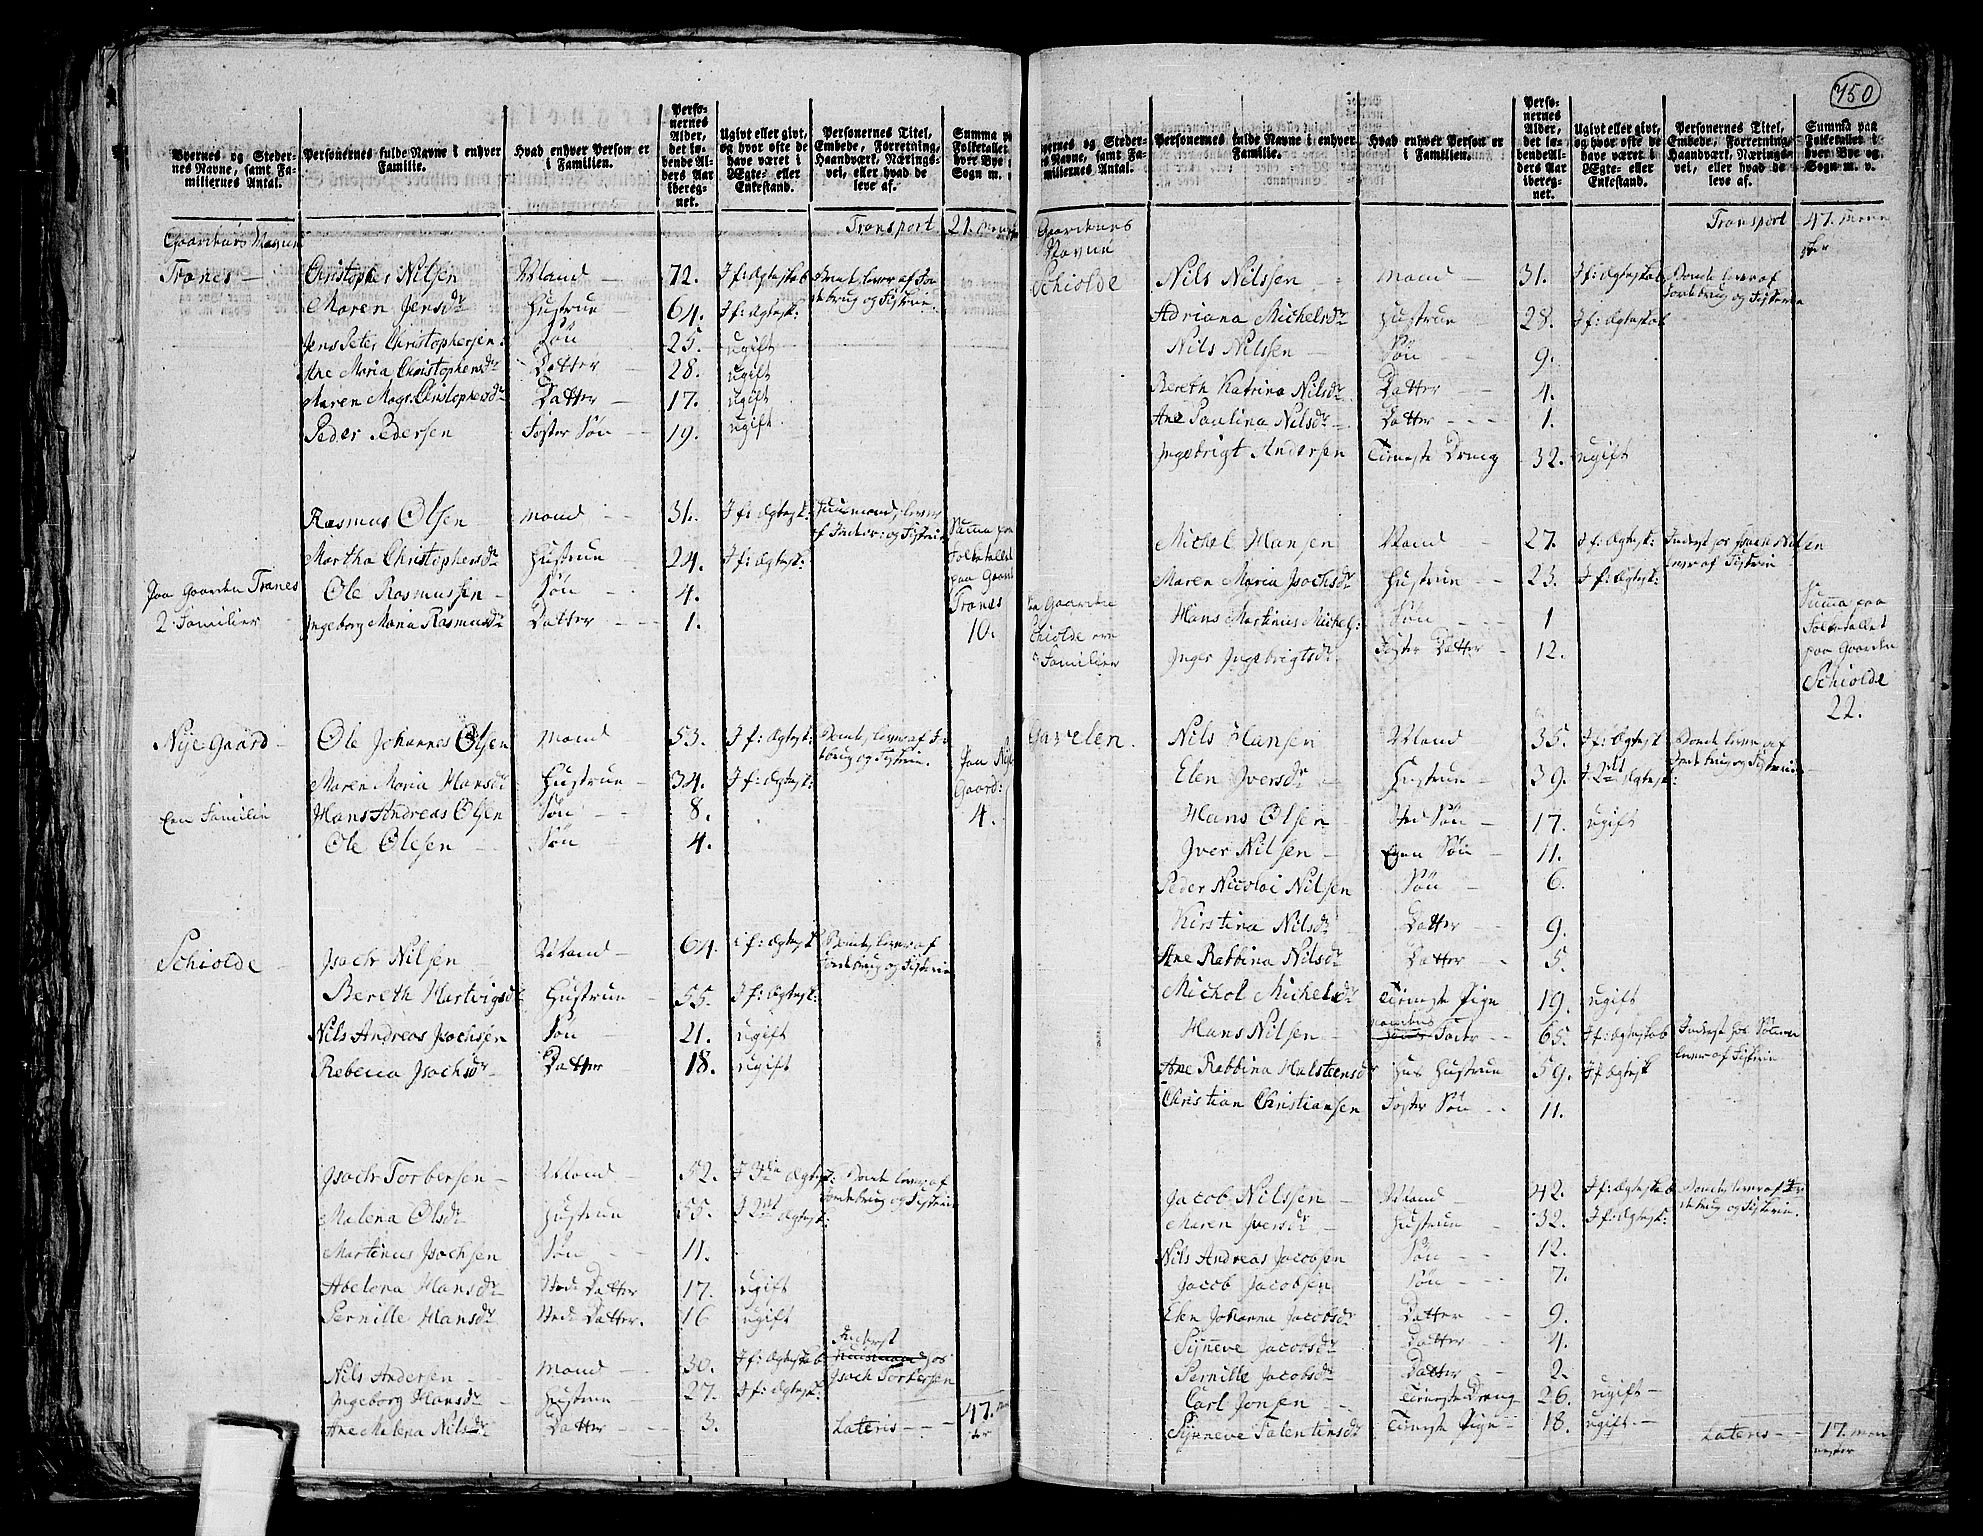 150
Byernes og Steder-
nes Navne, samt Fa-
miliernes Antal.
Personernes fulde Navne i enhver
Familie.
Hvad enhver Person er
i Familien.
Perso-
nernes
Alder,
det lø-
bende Al-
ders Aar
ibereg-
net.
Ugivt eller givt,
og hvor ofte de
have været i
Ægte- eller
Enkestand.
Personernes Titel,
Embede, Forretning,
Haandværk, Nærings-
vei, eller hvad de
leve af.
Summa pa
Folketallet
hver Bye
Sogn m.
Gaardens Navne Transport 21.
Tranes Christopher Nilsen Mand 72. I f: Ægteskab Bonde, lever af Jor
debrug og Fiskerie
Maren Jensdr Hustrue 64. I f: Ægtesk:
Jens Peter Christophersen Søn 25. ugift
Ane Maria Christophersdr Datter 28. ugift
Maren Mags: Christophersdr Datter 17. ugift
Peder Pedersen Foster Søn 19. ugift
Rasmus Olsen Mand 31. I f: Ægtesk: Huusmand, lever
af Jordbr: og Fiskerie
Martha Christophersdr Hustrue 24. I f: Ægtesk:
Paa Gaarden Tranes Ole Rasmussen Søn 4.
2 Familier Ingeborg Maria Rasmusdr Datter 1.
Summa paa
Folketallet
paa Gaard
Tranes
10.
Nye Gaard Ole Johannes Olsen Mand 53. I f: Ægtesk: Bonde, lever af Jor
debrug og Fiskerie.
Maren Maria Hansdr Hustrue 34. I f: Ægtesk:
Een Familie Hans Andreas Olsen Søn 8.
Ole Olesen Søn 4.
Paa Nye
Gaard:
4.
Schiolde Isach Nilsen Mand 64. i f: Ægtesk Bonde, lever af
Jordebrug og Fiskerie
Bereth Hartvigsdr Hustrue 55. I f: Ægtesk:
Nils Andreas Isachsen Søn 21. ugift
Rebecca Isachsdr Datter 18. ugift
Isach Torbersen Mand 52. I 3die Ægtesk: Bonde, lever af
Jordebrug og Fiskerie
Malena Olsdr Hustrue 55. I 2det Ægtesk:
Martinus Isachsen Søn 11.
Abelona Hansdr Sted Datter 17. ugift
Pernille Hansdr Sted Datter. 16 ugift
Nils Andersen Mand 30. I f: Ægteskab Inderst
Huusmand hos
Isach Torbersen
Ingeborg Hansdr Hustrue 27. I f: Ægtesk:
Ane Malena Nilsdr Datter 3. Lateris 47.
Byernes og Steder-
nes Navne, samt Fa-
miliernes Antal.
Personernes fulde Navne i enhver
Familie.
Hvad enhver Person er
i Familien.
Perso-
nernes
Alder,
det lø-
bende Al-
ders Aar
ibereg-
net.
Ugivt eller givt,
og hvor ofte de
have været i
Ægte- eller
Enkestand.
Personernes Titel,
Embede, Forretning,
Haandværk, Nærings-
vei, eller hvad de
leve af.
Summa paa
Folketallet i
hver Bye og
Sogn m. v.
Gaardenes Transport 47. Menne
Navne sker
Schiolde Nils Nilssen Mand 31. I f: Ægteskab Bonde lever af
Jordebrug og Fiskerie
Adriana Michelsdr Hustrue 28. I f: Ægteskab
Nils Nilsen Søn 9.
Bereth Katrina Nilsdr Datter 4.
Ane Paulina Nilsdr Datter 1.
Ingebrigt Andersen Tieneste Dreng 32. ugift
Michel Hansen Mand 27. I f: Ægtesk: Inderst hos Isach Nilsen
lever af Fiskerie
Maren Maria Isachsdr Hustrue 23. I f: Ægtesk:
Paa Gaarden Hans Martinus Michels: Søn 1
Schiolde ere
Familier Inger Ingebrigtsdr Foster Datter 12.
Summa paa
Folketallet
paa Gaarden
Schiolde
22.
Gavelen. Nils Hansen Mand 35. I f: Ægtesk Bonde lever af
Jordebrug og Fiskerie
Elen Iversdr Hustrue 39. I 2det Ægtesk:
Hans Olsen Sted Søn 17. ugift
Iver Nilsen Egen Søn 11.
Peder Nicolai Nilsen Søn 6.
Kirstina Nilsdr Datter 9.
Ane Rabbina Nilsdr Datter 5.
Michol Michelsdr Tieneste Pige 19. ugift
Hans Nilsen Fader 65. I f: Ægteskab Inderst hos Sønnen
lever af Fiskerie
Ane Rabbina Halsteensdr Hustrue 59. I f Ægtesk
Christian Christiansen Foster Søn 11.
Jacob Nilssen Mand 42. I f: Ægteskab Bonde, lever af Jor
debrug og Fiskerie.
Maren Iversdr Hustrue 32. I f: Ægtesk:
Nils Andreas Jacobsen Søn 12.
Jacob Jacobsen Søn 7.
Elen Johanna Jacobsdr Datter 9.
Synneve Jacobsdr Datter 4.
Pernille Jacobsdr Datter 2.
Carl Jonsen Tieneste Dreng 26. ugift
Synneve Valentinsdr Tieneste Pige 18. ugift. Lateris 77. Men
nesker